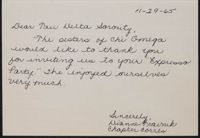 11-29-65
Dear Nau Delta Sorority,
The sisters of Chi Omega
would like to thank you
for inviting us to your "Expresso
Party." We enjoyed ourselves
very much.
Sincerely,
Dianne
Chapter Corres